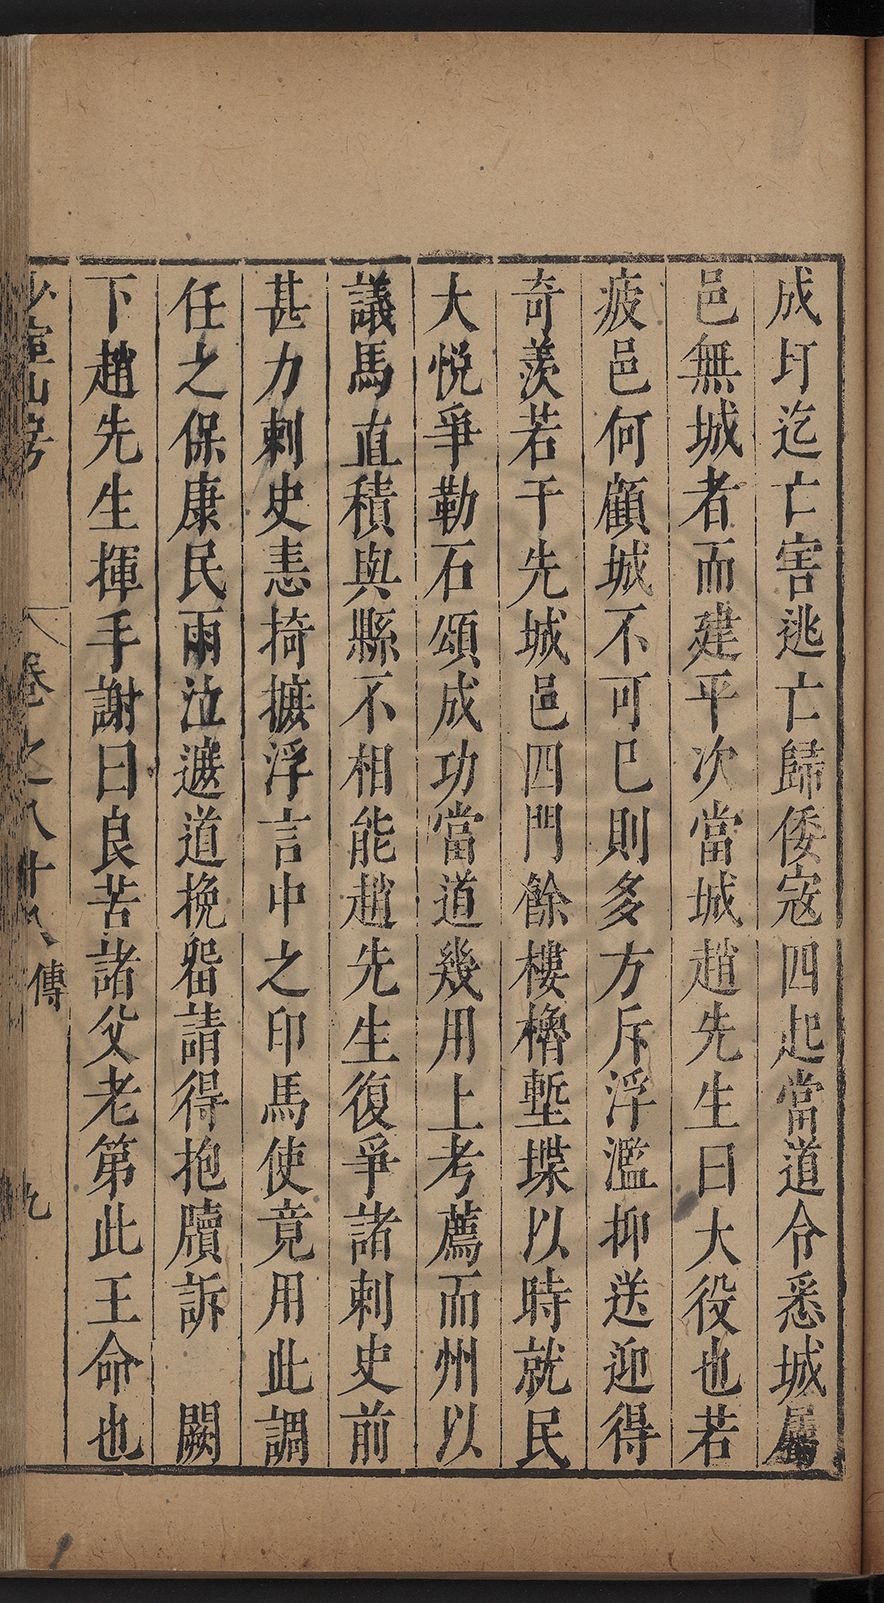 成圩迄亡害逃亡歸倭寇四起當道令悉城屬
邑無城者而建平次當城趙先生曰大役也若
疲邑何顧城不可已則多方斥浮濫抑送迎得
奇羨若干先城邑四門餘樓櫓塹堞以時就民
大悅爭勒石頌成功當道幾用上考薦而州以
議馬直積與縣不相能趙先生復爭諸刺史前
甚力刺史恚掎摭浮言中之印馬使竟用此調
任之保康民兩泣遮道挽畱請得抱牘訴　闕
下趙先生揮手謝曰良苦諸父老第此王命也
山房
卷之八十八　傳
九